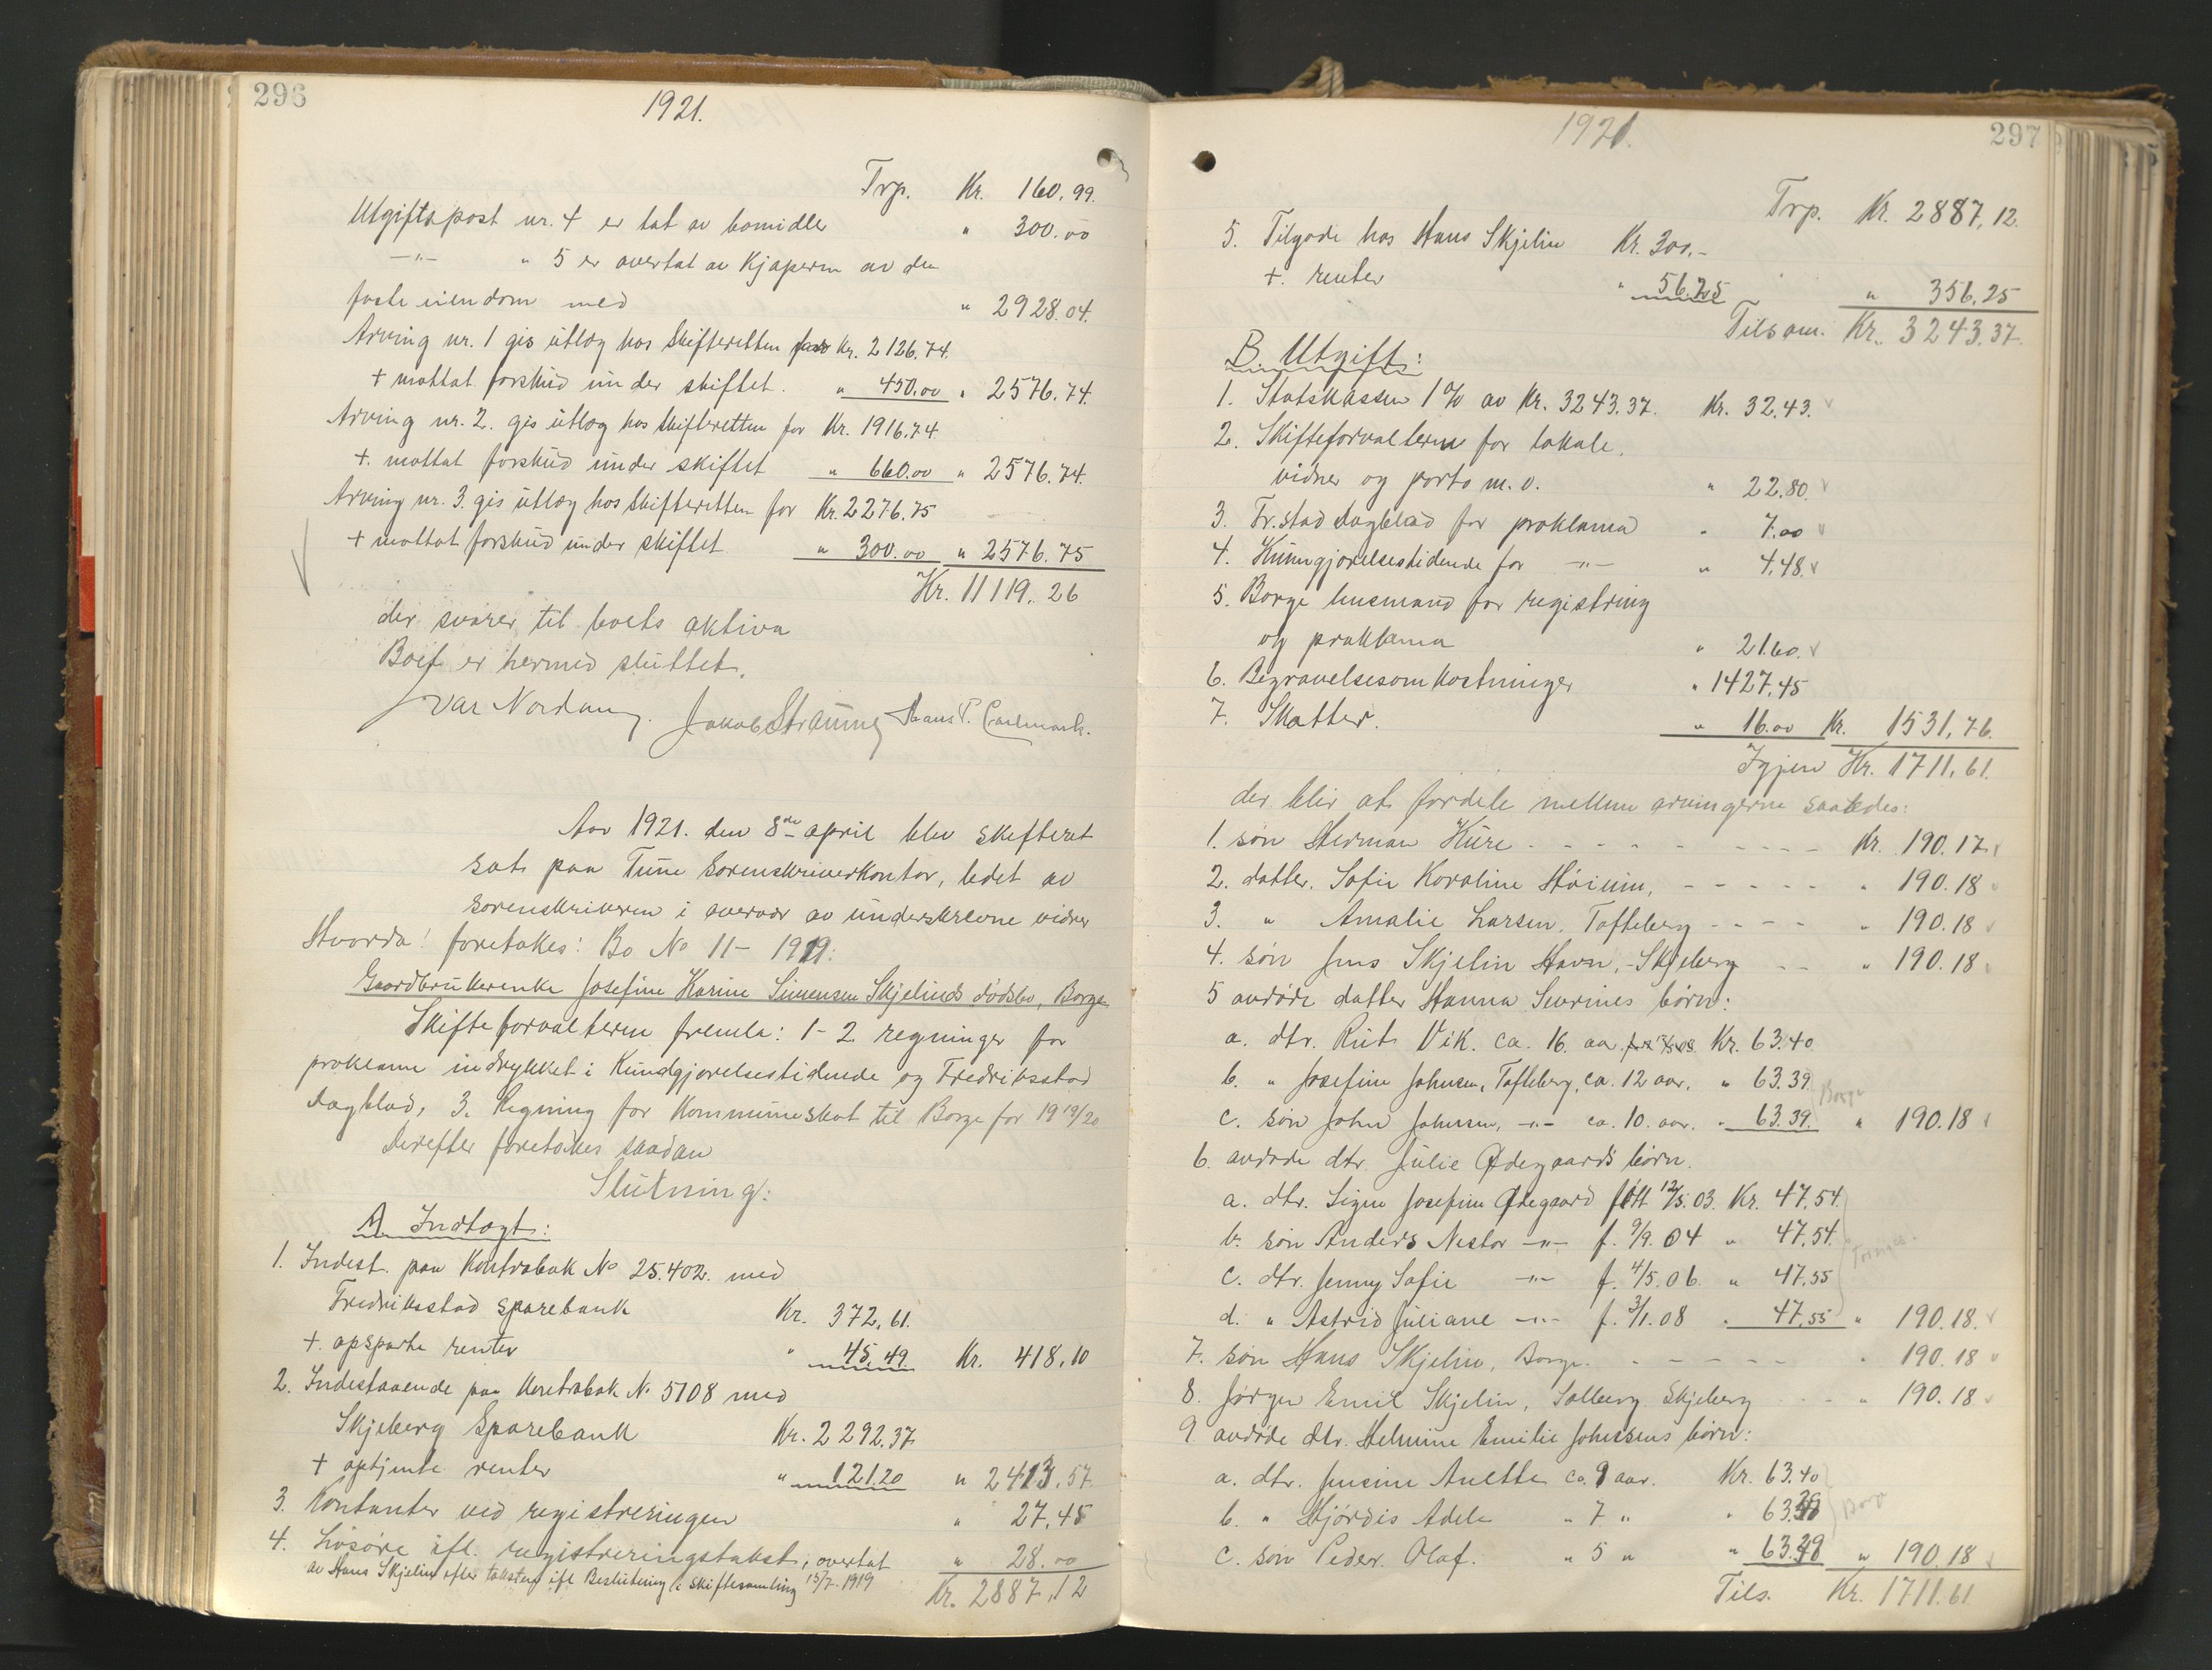 296
1921.
Trp. Kr. 160,99.
Utgiftspost nr. 4 er tat av bomidler " 300.00
—"— " 5 er overtat av Kjøperen av den
faste eiendom med " 2928.04.
Arving nr. 1 gis utlæg hos skifteretten for Kr. 2126.74.
+ mottat forskud under skiftet. " 450.00 " 2576.74.
Arving nr. 2. gis utlæg hos skifteretten for Kr. 1916.74
+. mottat forskud under skiftet " 660.00 " 2576.74.
Arving nr. 3. gis utlæg hos skifteretten for Kr. 2276.75
+ mottat forskud under skiftet " 300.00 " 2576.75
Kr. 11119.26
der svarer til boets aktiva
Boet er hermed sluttet.
Ivar Nordang. Jakob Straume Hans P. Carlmark.
Aar 1921. den 8de april blev skifteret
sat paa Tune Sorenskriverkontor, ledet av
sorenskriveren i overvær av underskrevne vidner
Hvorda! foretokes: Bo No 11 - 1919:
Gaardbrukerenke Josefine Karine Simensen Skjelinds dødsbo, Borge
Skifteforvalteren fremla: 1-2 regninger for
proklama indrykket i Kundgjørelsestidende og Fredriksstad
Dagblad, 3. Regning for Kommuneskat til Borge for 1919/20
Derefter foretokes saadan
Slutning:
A. Indtægt:
1. Indest. paa Kontrabok No 25.402. med
Fredriksstad sparebank Kr. 372,61.
+. opsparte renter " 45.49 Kr. 418,10
2. Indestaaende paa Kontrabok No 5108 med
Skjeberg Sparebank Kr. 2292.37
+ optjente renter " 121.20 " 2413.57.
3. Kontanter ved registreringen " 27.45
4. Løsøre ifl. registreringstakst, overtat " 28.00
av Hans Skjelin efter taksten ifl Beslutning i skiftesamling 15/7-1919
Kr. 2887,12
297
1921.
Trp. Kr. 2887,12.
5. Tilgode hos Hans Skjelin Kr. 300.-
+. renter " 56.25 " 356,25
Tilsam. Kr. 3243.37.
B. Utgift:
1. Statskassen 1% av Kr. 3243.37. Kr. 32.43.
2. Skifteforvalteren for lokale,
vidner og porto m.v. " 22.80.
3. Fr.stad Dagblad for proklama " 7.00
4. Kunngjørelsestidende for —"— " 4.48.
5. Borge lensmand for registring
og proklama " 21.60.
6. Begravelsesomkostninger " 1427,45
7. Skatter. " 16.00 Kr. 1531,76.
Igjen Kr. 1711,61.
der blir at fordele mellem arvingerne saaledes:
1. søn Herman Hure - - - - Kr. 190.17
2. datter. Sofie Koraline Høium, - - - - " 190.18
3. " Amalie Larsen, Tofteberg - - - - " 190.18
4. søn Jens Skjelin Havn, - Skjeberg - - " 190.18
5 avdøde datter Hanna Severines børn:
a. dtr. Rut Vik. ca. 16. aar Kr. 63.40
b. " Josefine Johnsen, Tofteberg, ca. 12 aar. " 63.39
c. søn John Johnsen, —"— ca. 10. aar. " 63.39. " 190.18
Borge
6. avdøde dtr. Julie Ødegaards børn.
a. dtr. Signe Josefine Ødegaard født 12/5.03. Kr. 47.54.
b. søn Anders Nestor —"— f. 9/9.04 " 47.54.
c. dtr. Jenny Sofie —"— f. 4/5.06. " 47.55
d. " Astrid Juliane —"— f. 3/1.08 " 47.55 " 190.18.
7. søn Hans Skjelin, Borge. - - - - " 190.18
8. Jørgen Emil Skjelin, Solberg Skjeberg - - " 190.18
9. avdøde dtr. Helmine Emilie Johnsens børn:
a. dtr. Jensine Anette ca. 9 aar. Kr. 63.40
b. " Hjørdis Adele " 7 " " 63.39
Borge
c. søn Peder Olaf. " 5 " " 63.39 " 190.18
Tils. Kr. 1711.61